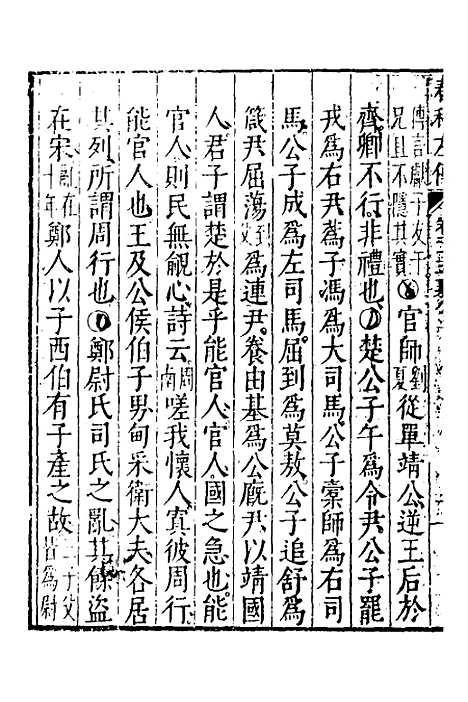 春秋左傳
傳言獻子友于
兄且不隱其實官師劉夏從單靖公逆王后於
齊卿不行非禮也楚公子午爲令尹公子罷
戎爲右尹蒍子馮爲大司馬公子橐師爲右司
馬公子成爲左司馬屈到爲莫敖公子追舒爲
箴尹屈蕩到爲連尹養由基爲公廐尹以靖國
人君子謂楚於是乎能官人官人國之急也能
官人則民無覦心詩云周南嗟我懷人寘彼周行
能官人也王及公侯伯子男甸采衛大夫各居
其列所謂周行也鄭尉氏司氏之亂其餘盜
在宋亂在十年鄭人以子西伯有子產之故三子父皆爲尉